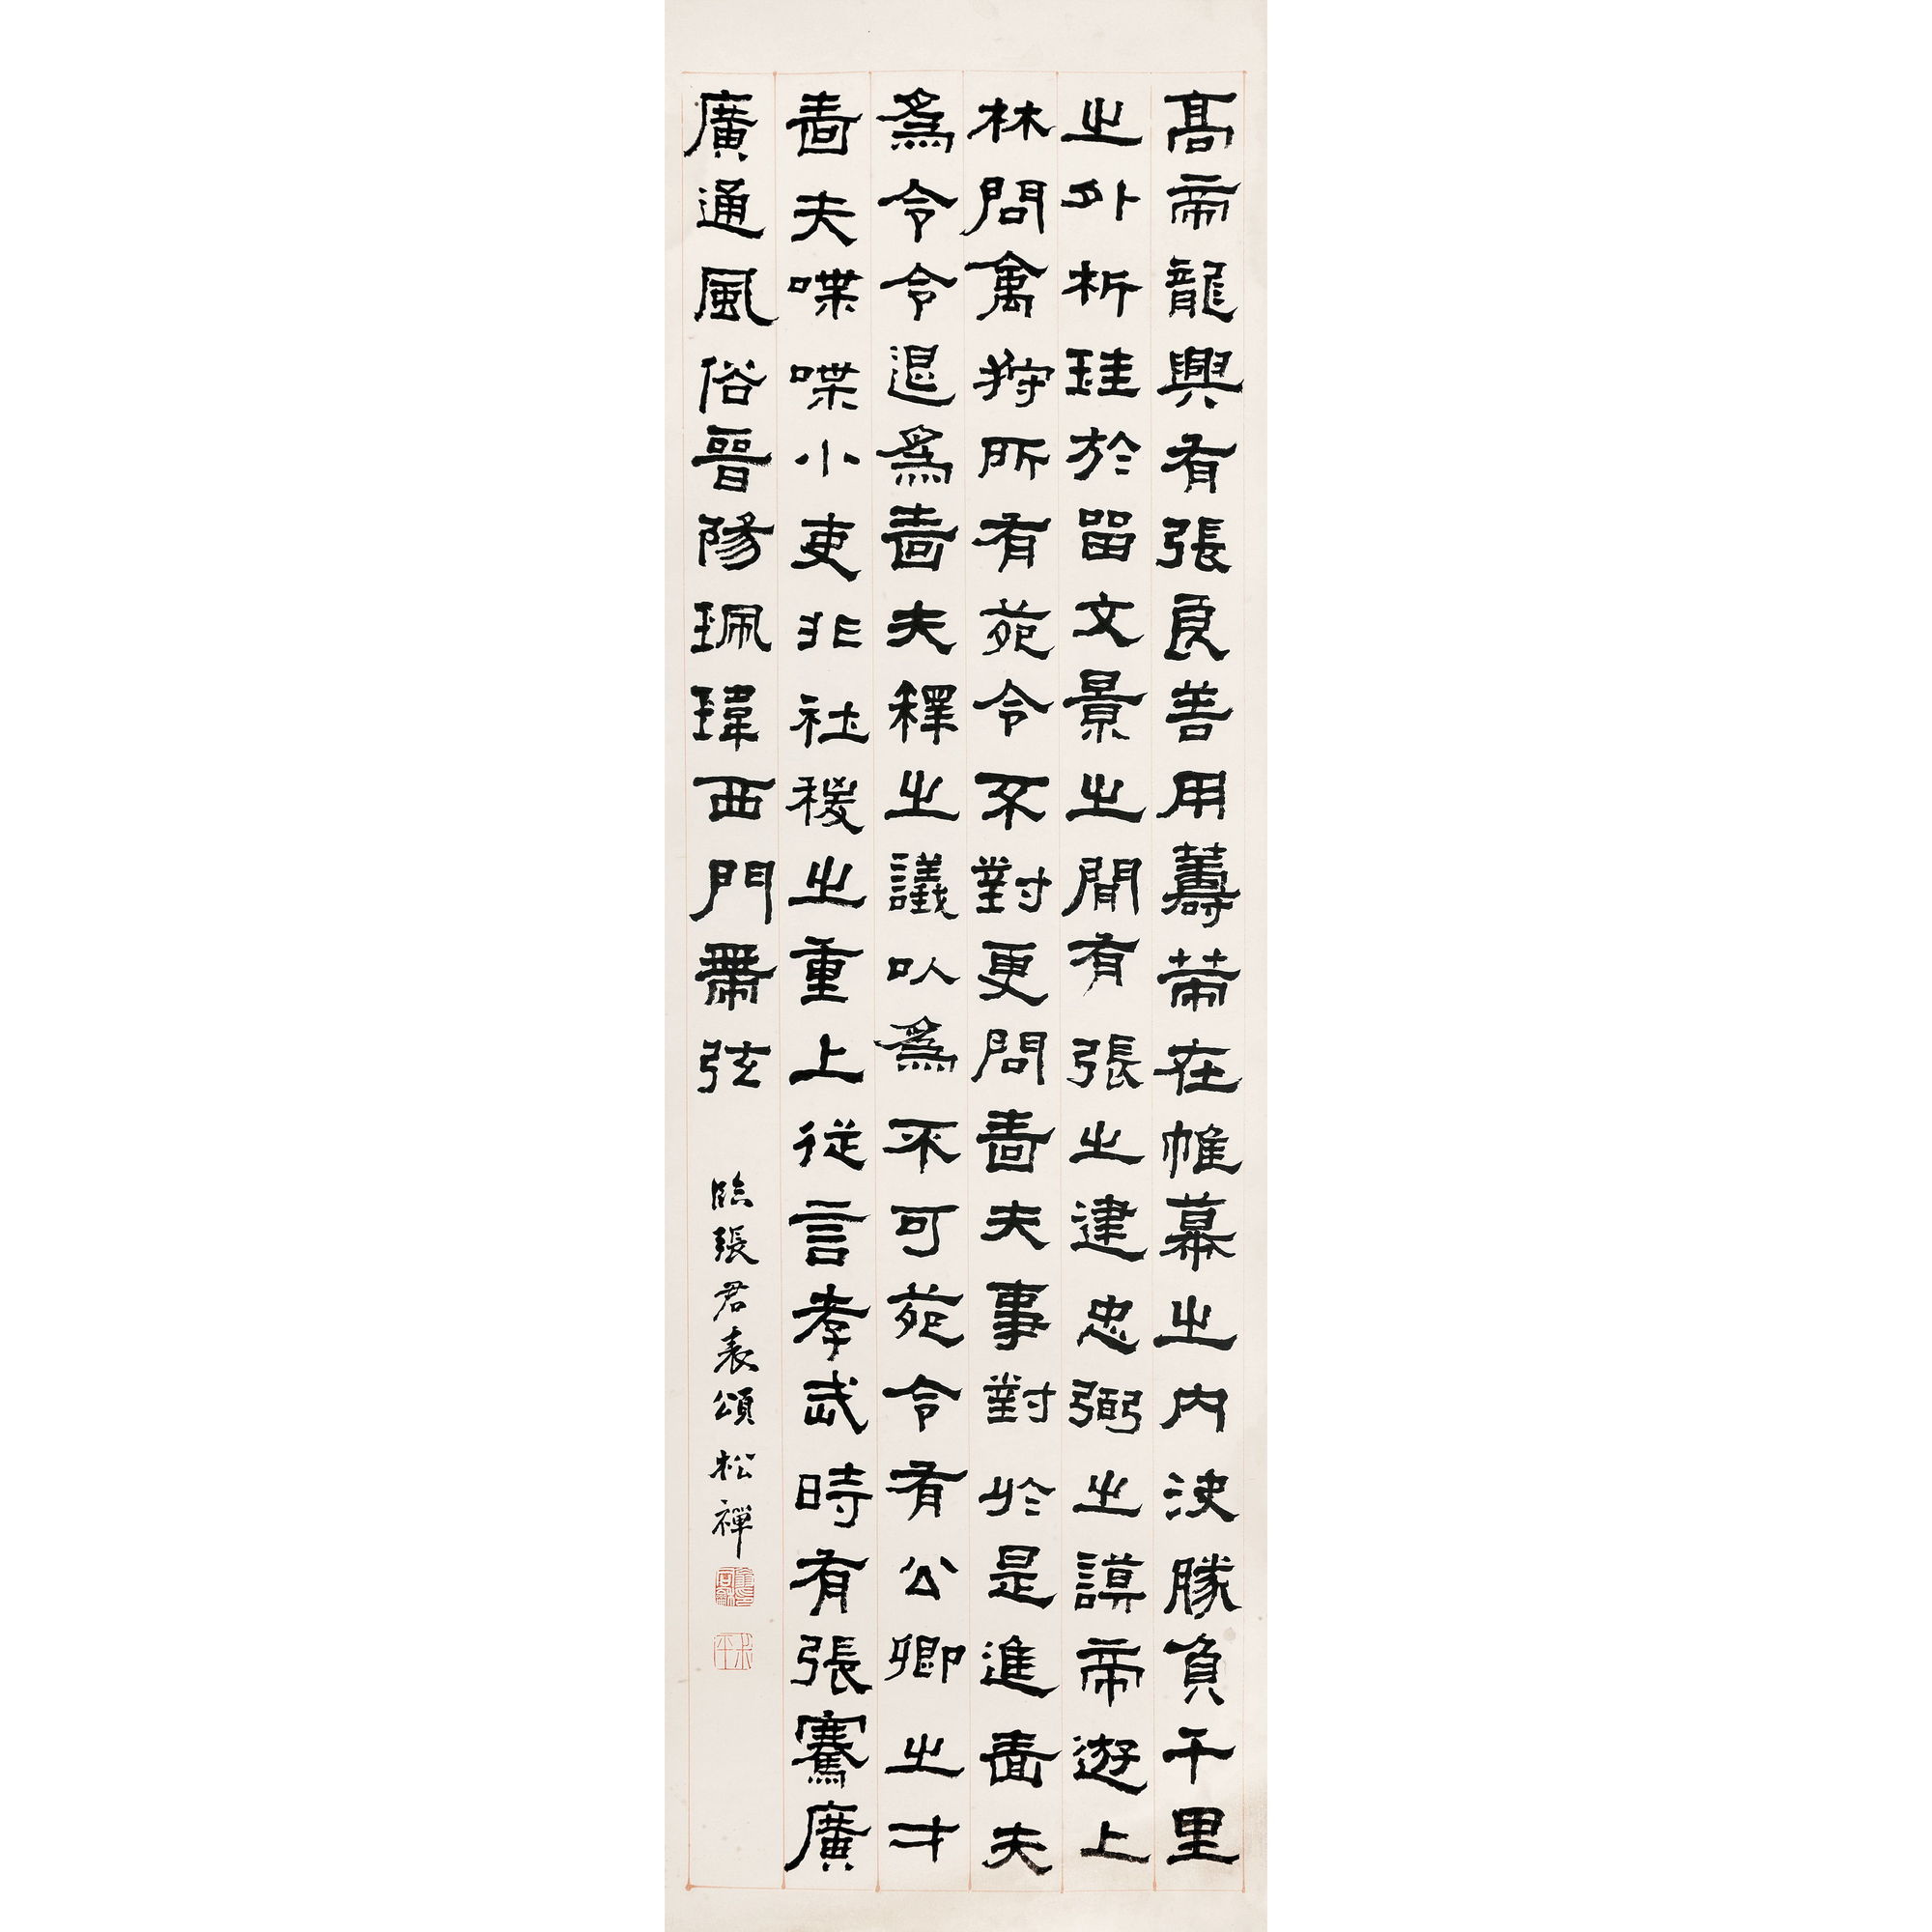 高帝龍興有張良善用籌策在帷幕之內決勝負千里
之外析珪於留文景之間有張之建忠弼之謨帝遊上
林問禽狩所有苑令不對更問嗇夫事對於是進嗇夫
為令令退為嗇夫釋之議以為不可苑令有公卿之才
嗇夫喋喋小吏非社稷之重上從言孝武時有張騫廣
廣通風俗晉陽珮瑋西門帶弦
臨張君表頌 松禪